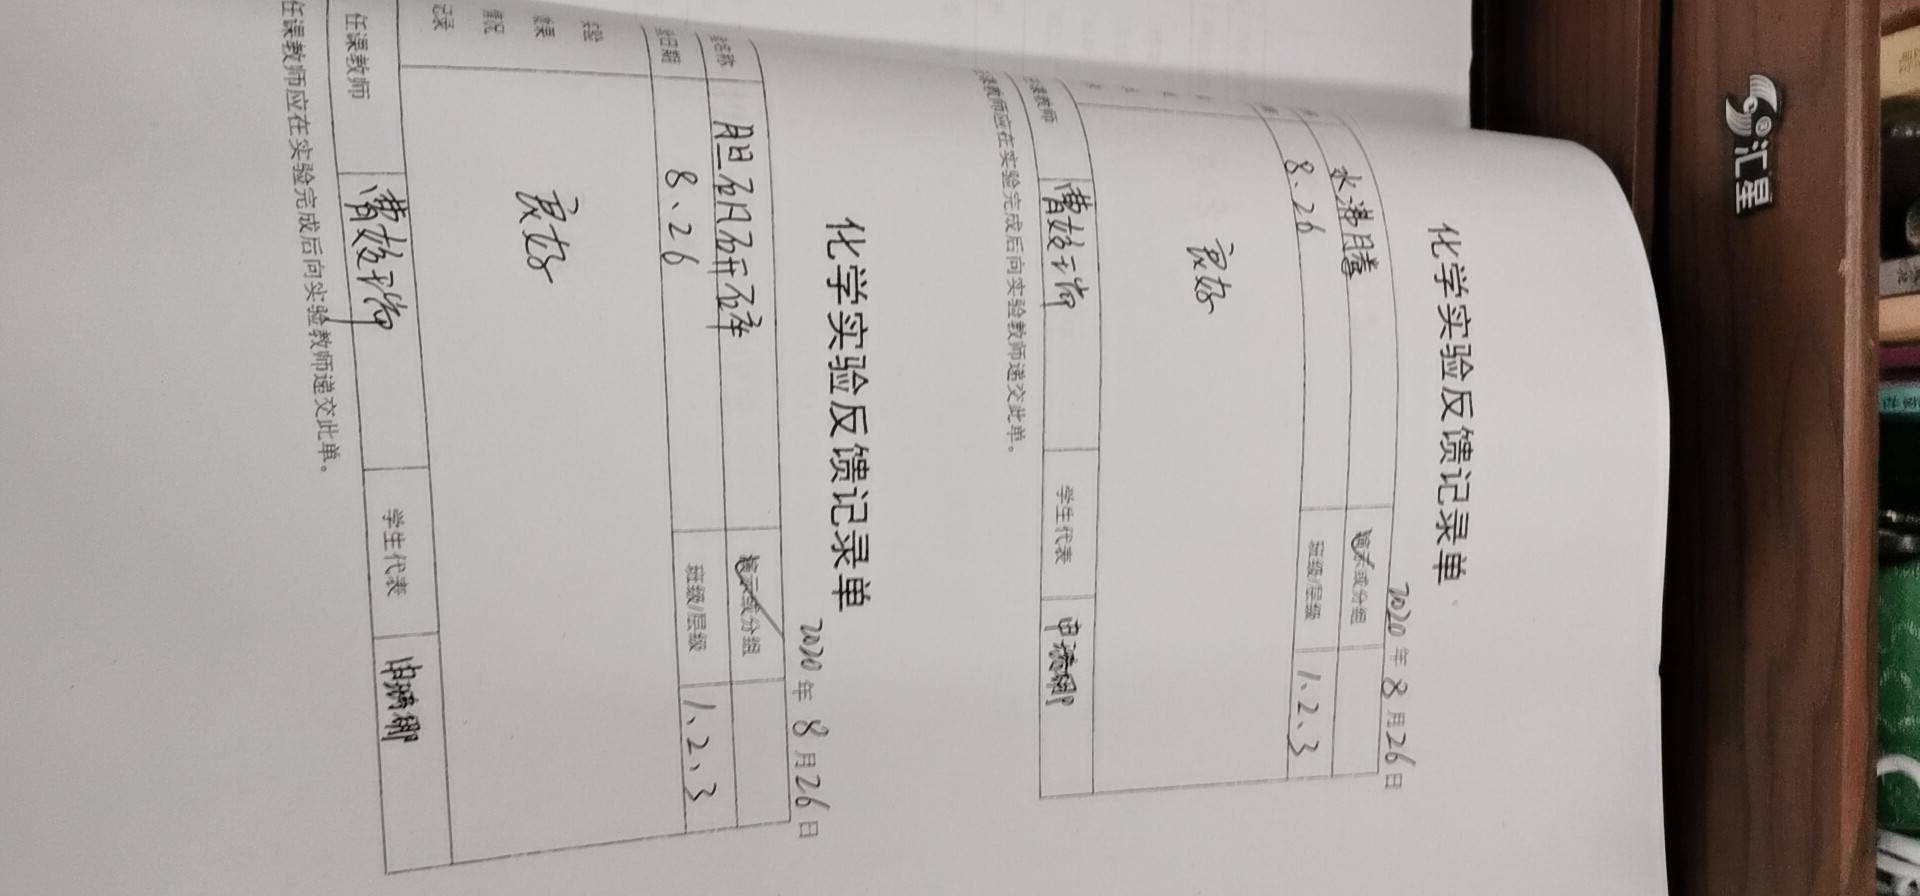 化学实验反馈记录单
2020年8月26日
水沸腾 演示或分组
8、26 班级/层级 1、2、3
良好
任课教师 学生代表
任课教师应在实验完成后向实验教师递交此单。
化学实验反馈记录单
2020年8月26日
名称 胆矾研碎 演示或分组
日期 8、26 班级/层级 1、2、3
实验
课
情况
记录
良好
任课教师 学生代表
任课教师应在实验完成后向实验教师递交此单。
汇星